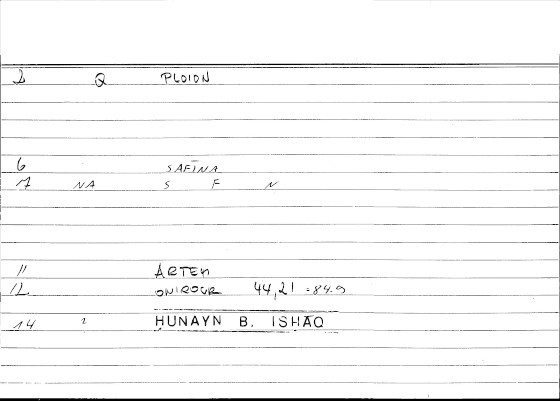 2 Q PLOION
6 SAFĪNA
7 NA S F N
11 ARTEM
12 ONIROCR 44,21 = 84.9
14 2 HUNAYN B. ISHAQ